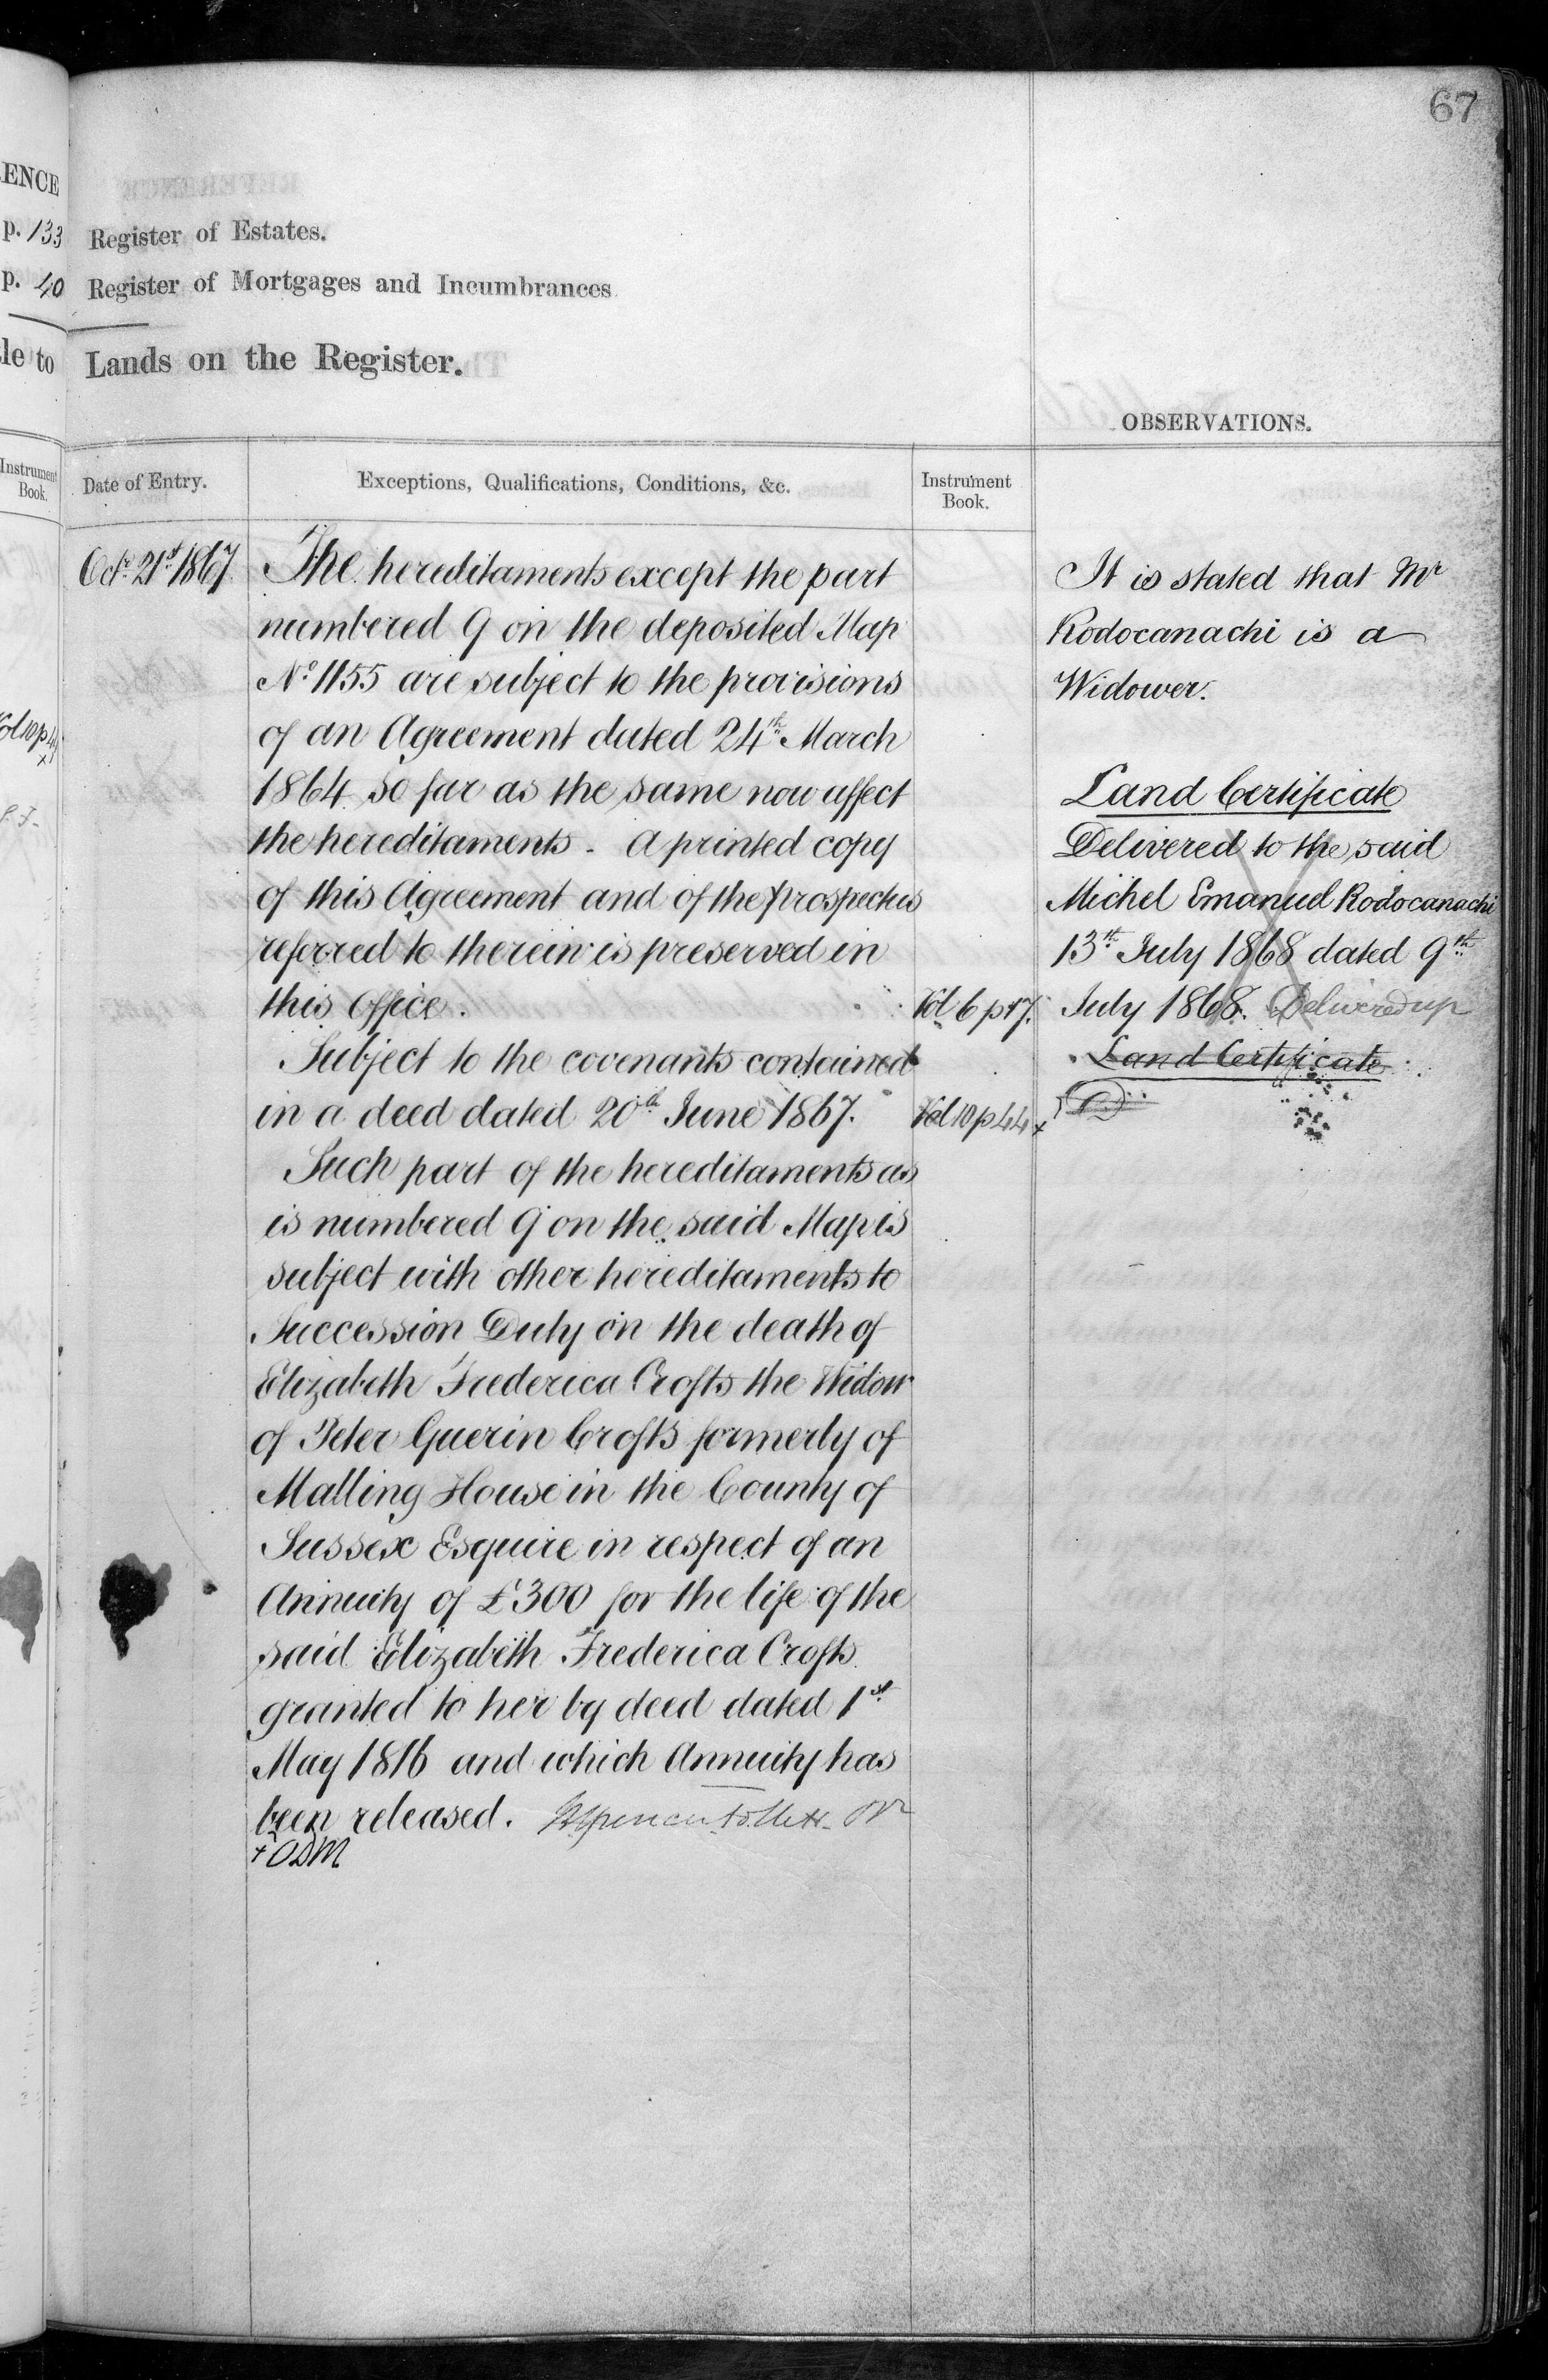 67
ENCE
p. 133 Register of Estates.
p. 40 Register of Mortgages and Incumbrances
le to Lands on the Register.
OBSERVATIONS.
Instrument Book.
Date of Entry.
Exceptions, Qualifications, Conditions, &c.
Instrument Book.
Octr. 21st 1867
The hereditaments except the part
numbered 9 on the deposited Map
No. 1155 are subject to the provisions
of an Agreement dated 24th March
1864 so far as the same now affect
the hereditaments. A printed copy
of this Agreement and of the prospectus
referred to therein is preserved in
this Office. Vol 6 p 17.
Subject to the covenants contained
in a deed dated 20th June 1867. Vol 10 p 44 x
Such part of the hereditaments as
is numbered 9 on the said Map is
subject with other hereditaments to
Succession Duty on the death of
Elizabeth Frederica Crofts the Widow
of Peter Guerin Crofts formerly of
Malling House in the County of
Sussex Esquire in respect of an
Annuity of £300 for the life of the
said Elizabeth Frederica Crofts
granted to her by deed dated 1st
May 1816 and which Annuity has
been released.
It is stated that Mr
Rodocanachi is a
Widower.
Land Certificate
Delivered to the said
Michel Emanuel Rodocanachi
13th July 1868 dated 9th
July 1868. Delivered up
Land Certificate
Vol 10 p 44
x